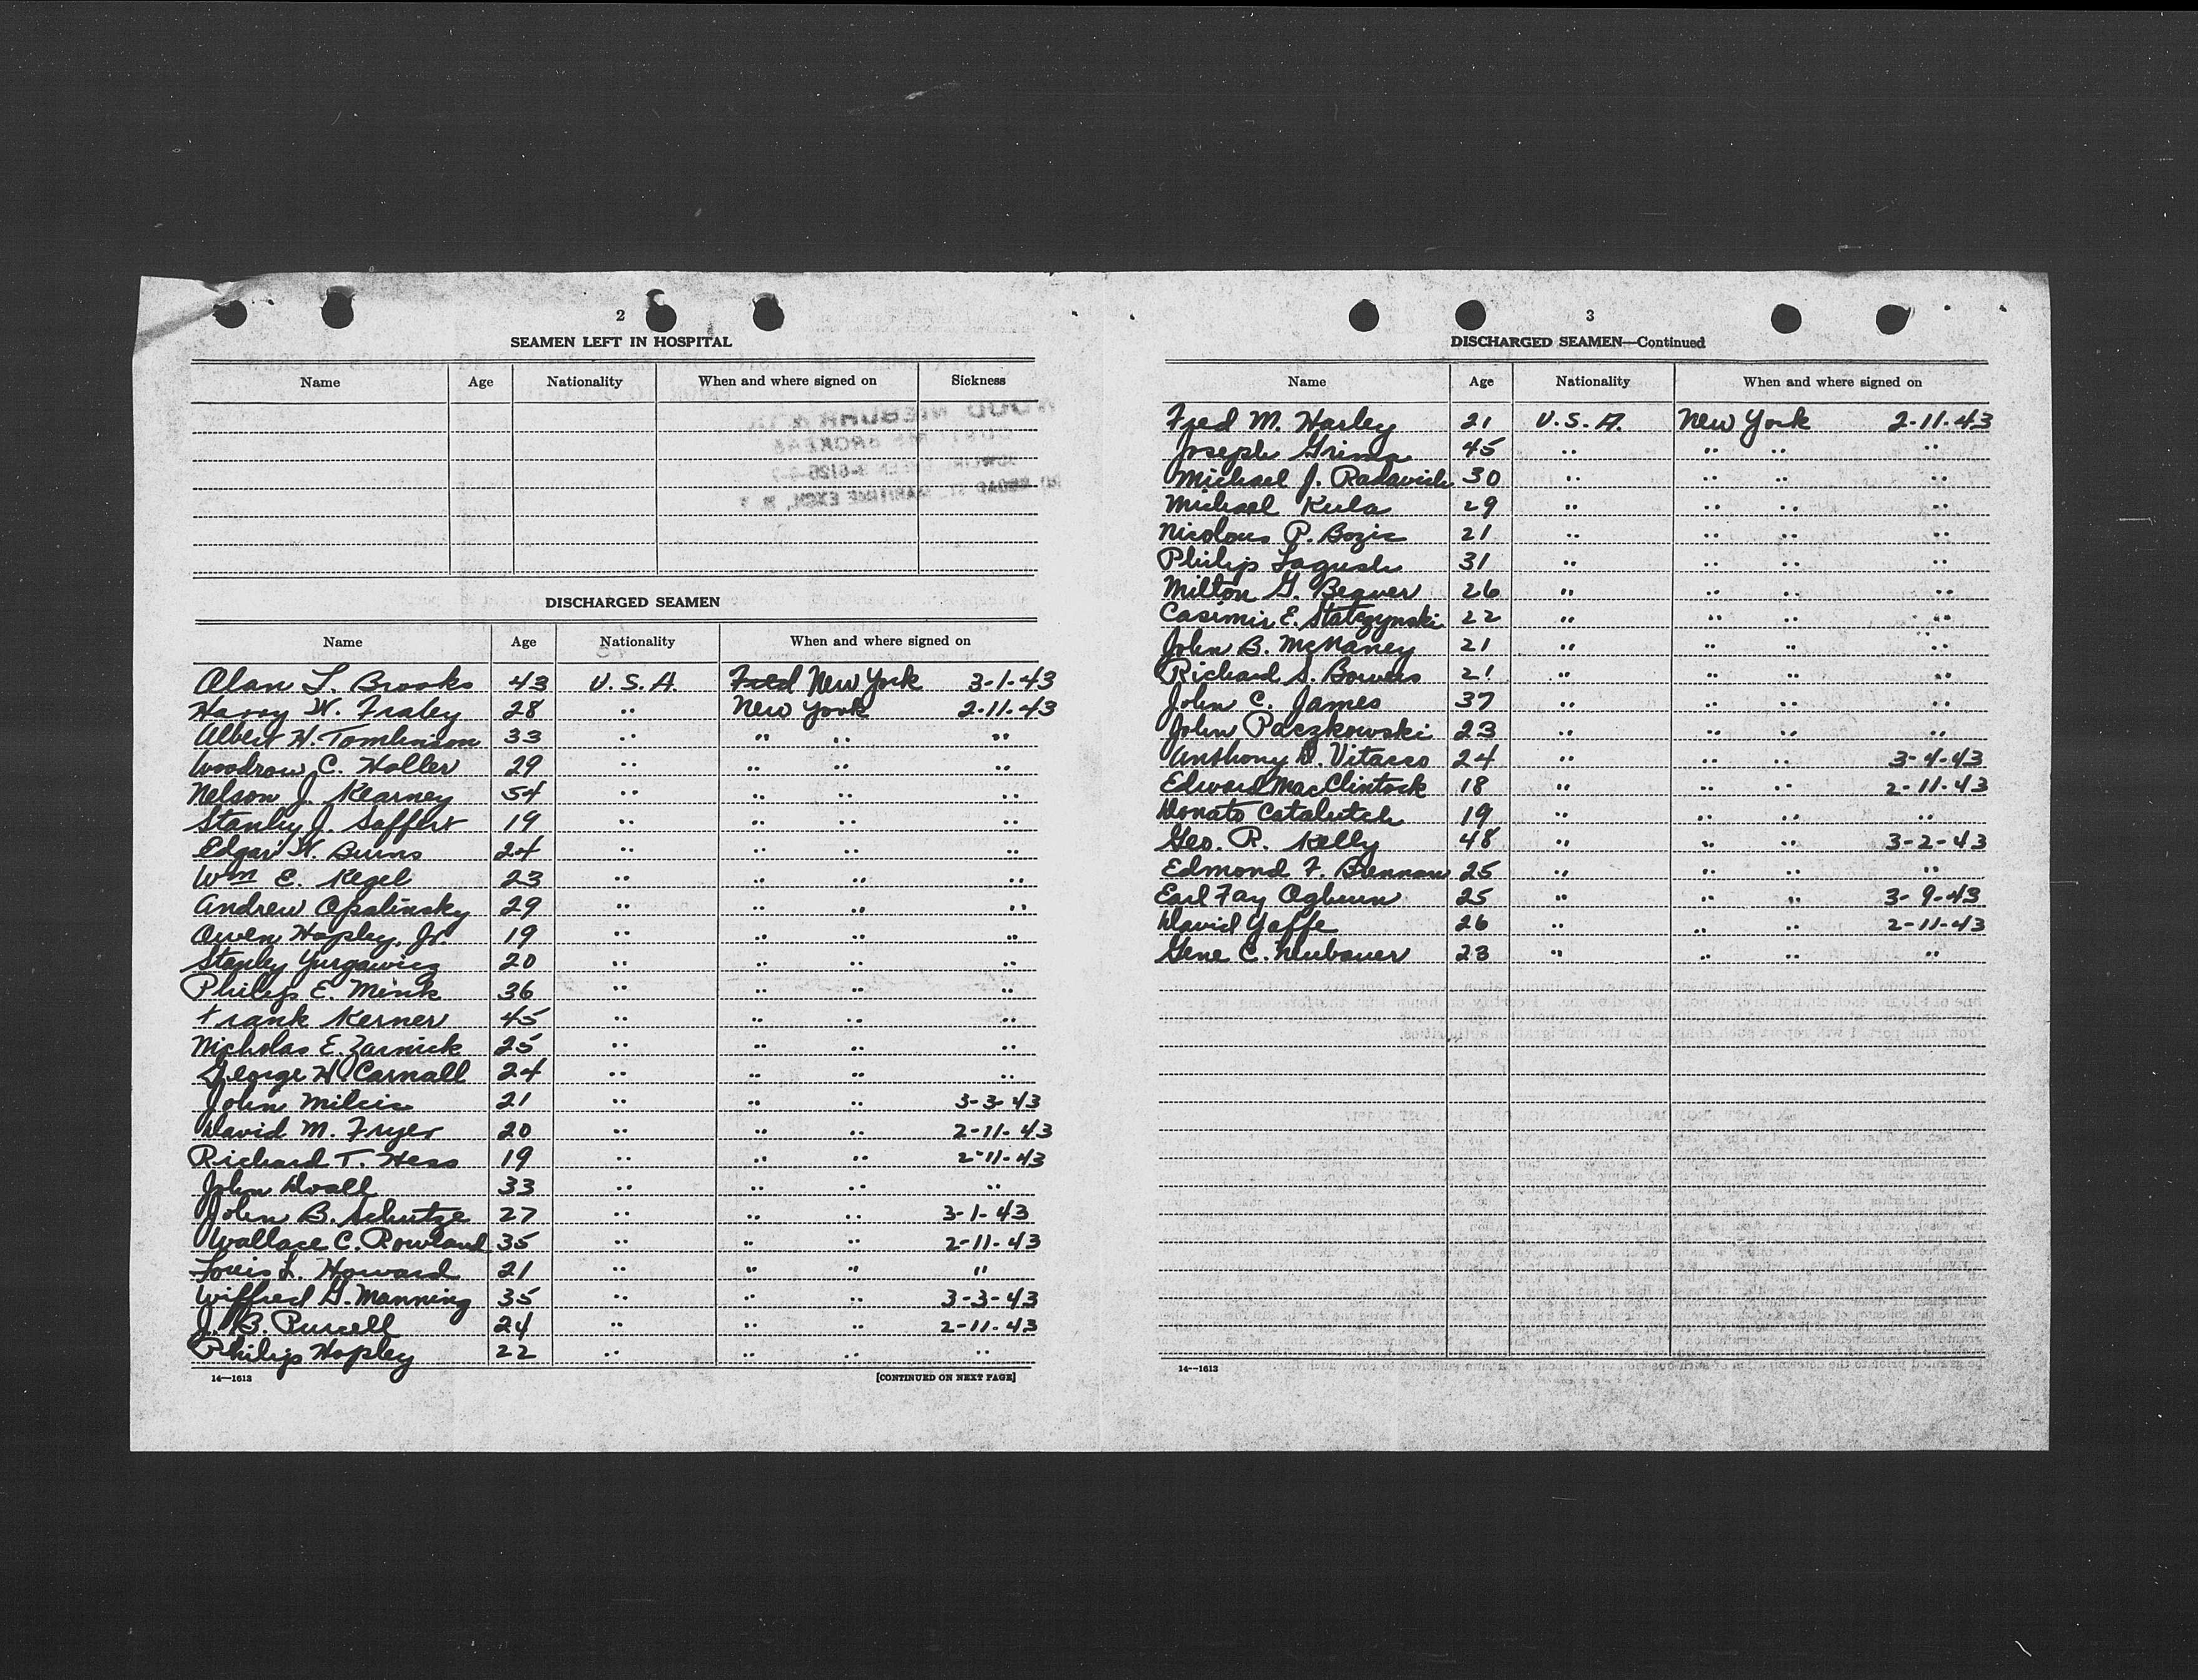 2
SEAMEN LEFT IN HOSPITAL
Name Age Nationality When and where signed on Sickness
DISCHARGED SEAMEN
Name Age Nationality When and where signed on
Alan L. Brooks 43 U.S.A. Fred New York 3-1-43
Harry W. Fraley 28 " New York 2-11-43
Albert H. Tomlinson 33 " " " "
Woodrow C. Holler 29 " " " "
Nelson J. Kearney 54 " " " "
Stanley J. Saffert 19 " " " "
Edgar W. Burns 24 " " " "
Wm E. Kegel 23 " " " "
Andrew Opalinsky 29 " " " "
Owen Hopley, Jr. 19 " " " "
Stanley Yurgawicz 20 " " " "
Philip E. Mink 36 " " " "
Frank Kerner 45 " " " "
Nicholas E. Zarnick 25 " " " "
George W. Carnall 24 " " " "
John Milcic 21 " " " 3-3-43
David M. Fryer 20 " " " 2-11-43
Richard T. Hess 19 " " " 2-11-43
John Dvall 33 " " " "
John B. Schutze 27 " " " 3-1-43
Wallace C. Rowland 35 " " " 2-11-43
Louis L. Howard 21 " " " "
Wilfred G. Manning 35 " " " 3-3-43
J. B. Purcell 24 " " " 2-11-43
Philip Hopley 22 " " " "
14—1613 [CONTINUED ON NEXT PAGE]
3
DISCHARGED SEAMEN—Continued
Name Age Nationality When and where signed on
Fred M. Harley 21 U.S.A. New York 2-11-43
Joseph Grima 45 " " " "
Michael J. Radavich 30 " " " "
Michael Kula 29 " " " "
Nicolous P. Bozic 21 " " " "
Philip Lagush 31 " " " "
Milton G. Beaver 26 " " " "
Casimir E. Statzynski 22 " " " "
John B. McNaney 21 " " " "
Richard S. Bowers 21 " " " "
John C. James 37 " " " "
John Paczkowski 23 " " " "
Anthony D. Vitasso 24 " " " 3-4-43
Edward MacClintock 18 " " " 2-11-43
Donato Catalutch 19 " " " "
Geo. R. Kelly 48 " " " 3-2-43
Edmond F. Brennan 25 " " " "
Earl Fay Ogburn 25 " " " 3-9-43
David Yaffe 26 " " " 2-11-43
Gene C. Neubauer 23 " " " "
14—1613